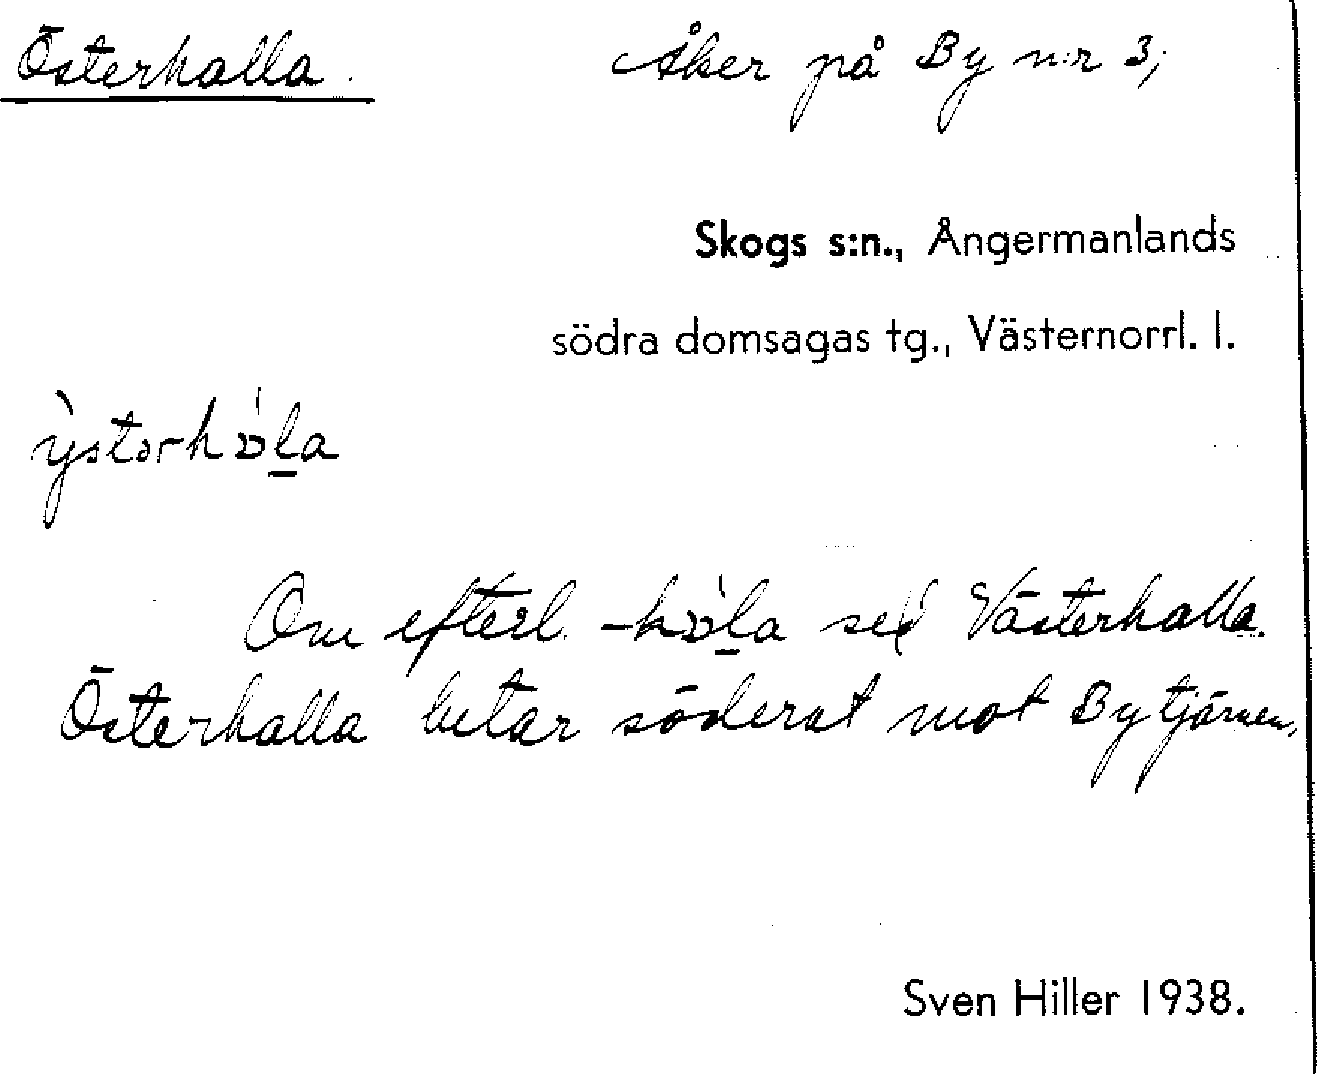 Österhalla. Åker på By n:r 3;
Skogs s:n., Ångermanlands
södra domsagas tg., Västernorrl. l.
Om efterl. sed Västerhalla.
Österhalla lutar söderut mot By tjärnen,
Sven Hiller 1938.